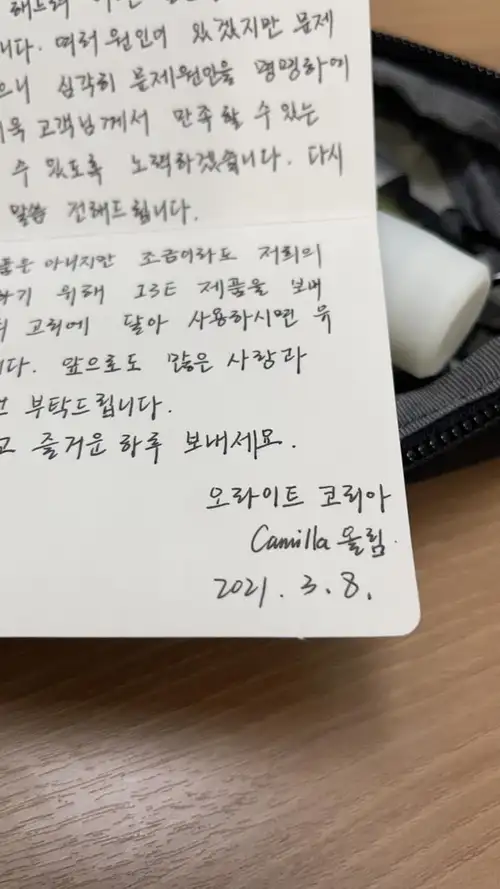 니다. 여러 원인이 있겠지만 문제
으니 심각히 문제원인을 명명하게
더욱 고객님께서 만족할 수 있는
수 있도록 노력하겠습니다. 다시
말씀 전해드립니다.
품은 아니지만 조금이라도 저희의
하기 위해 I3E 제품을 보내
고리에 달아 사용하시면 유
니다. 앞으로도 많은 사랑과
부탁드립니다.
고 즐거운 하루 보내세요.
오라이트 코리아
Camilla 올림.
2021. 3. 8.